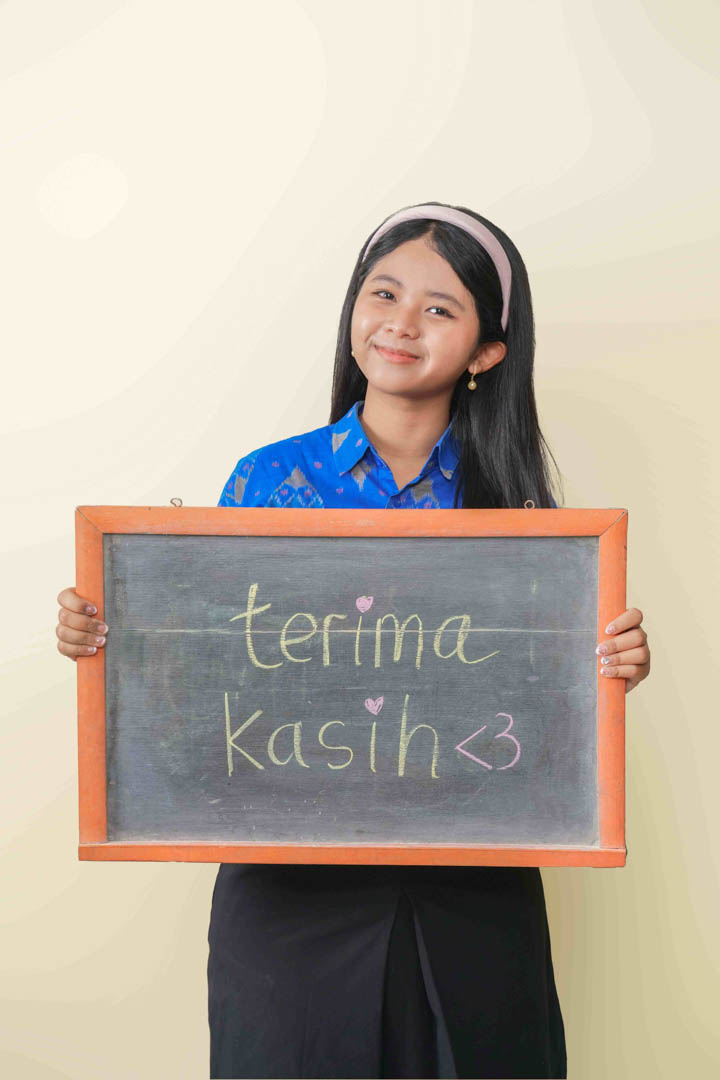 terima
kasih <3